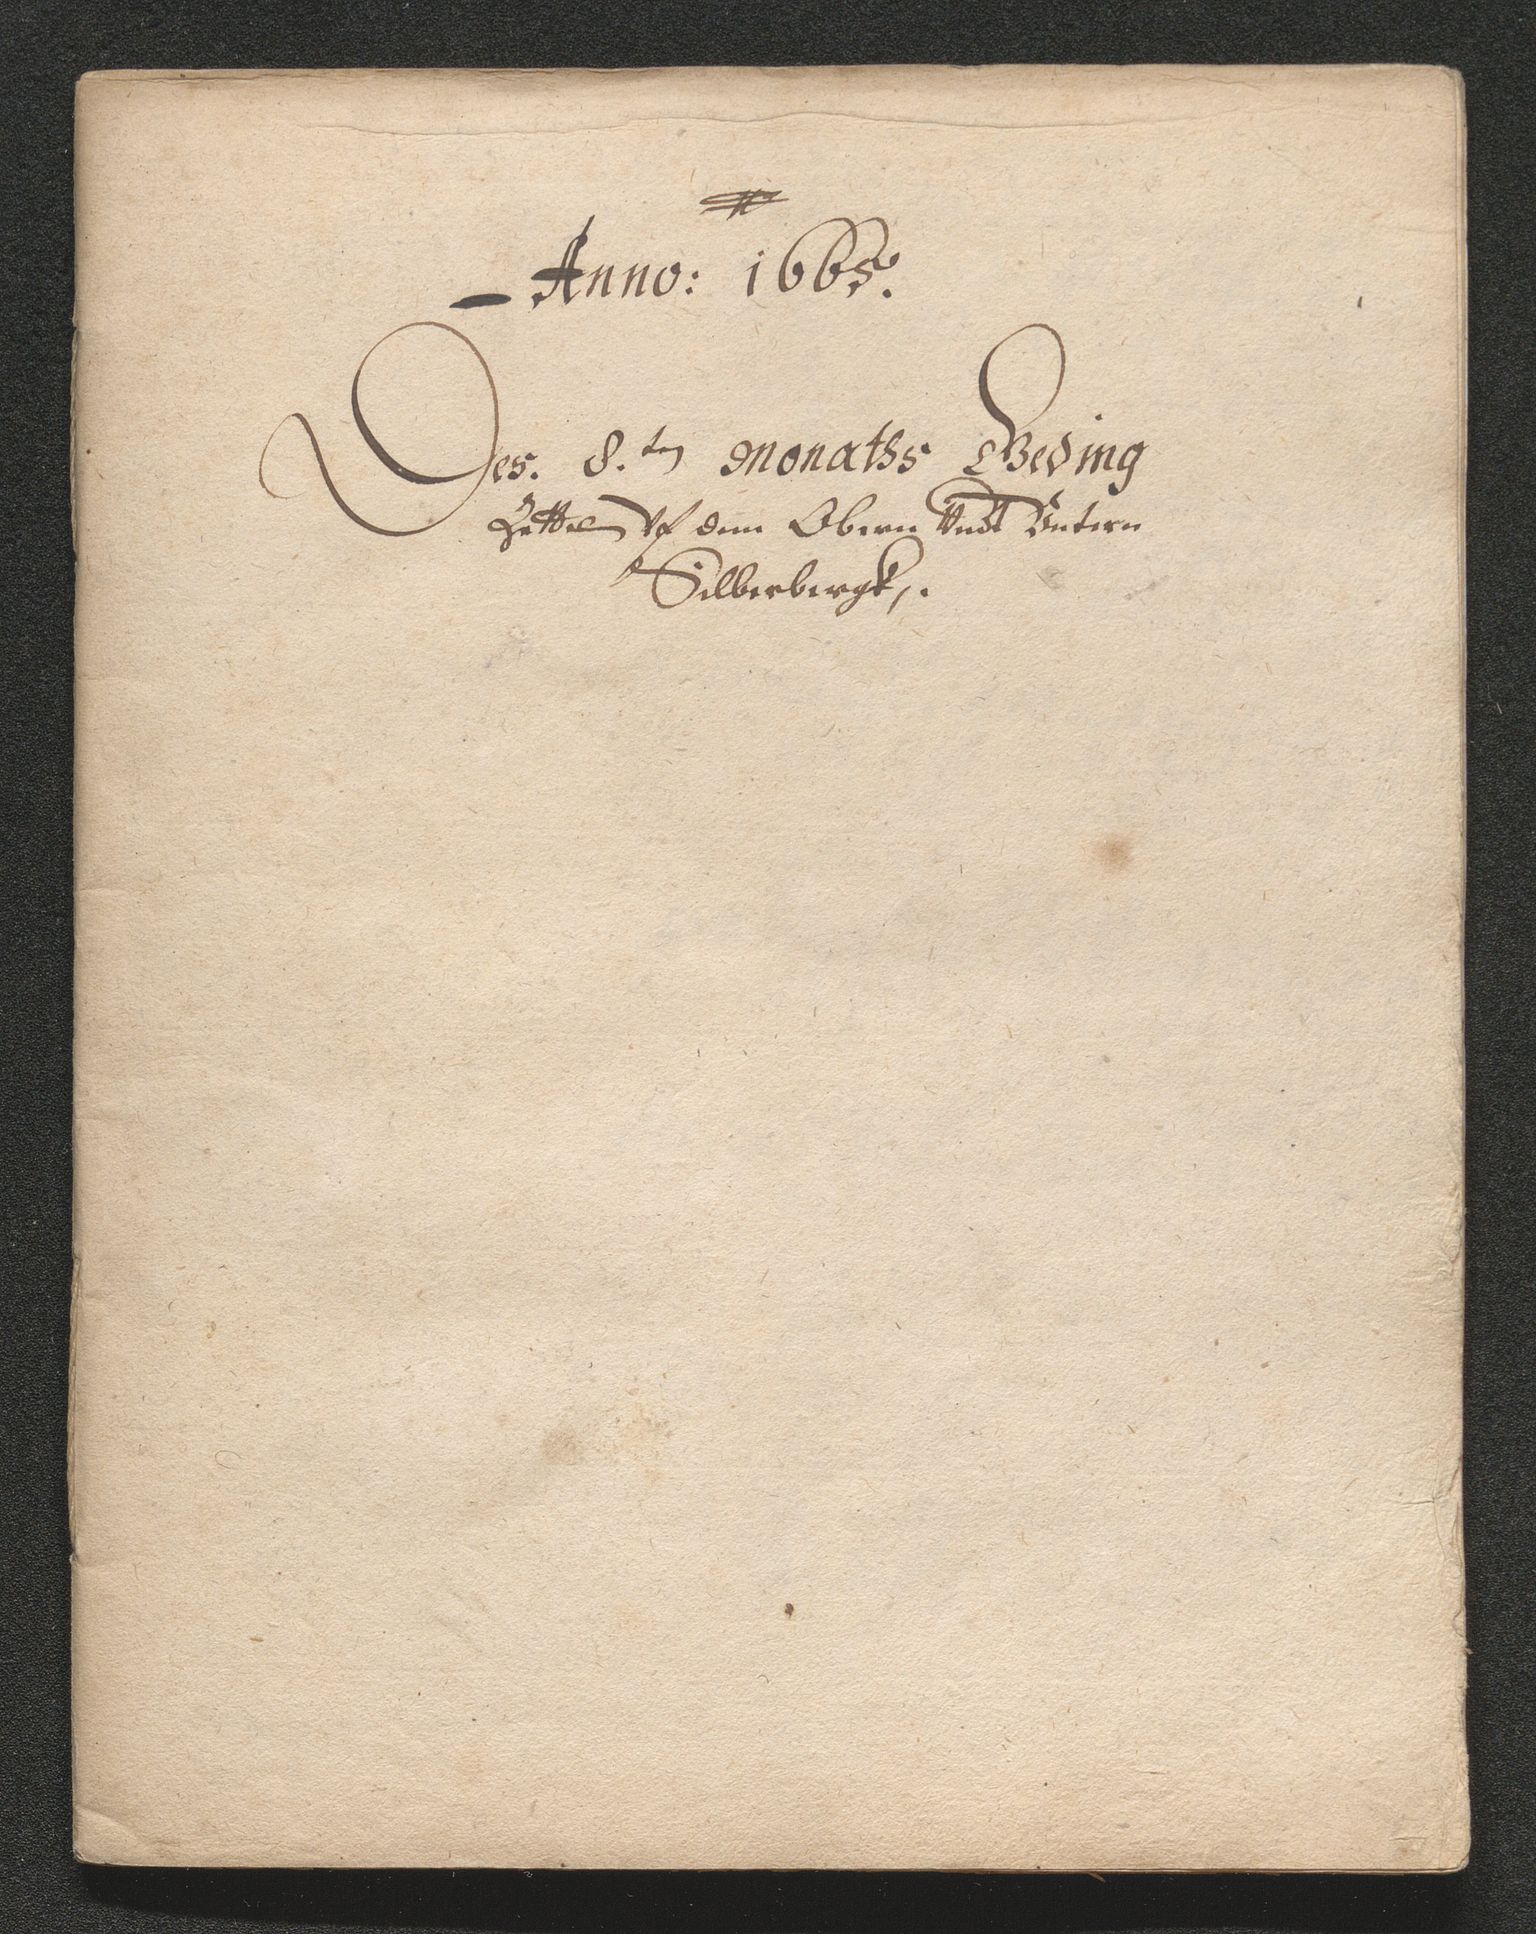 Anno: 1665.
Des. 8.ten Monaths Geding
Zettel Vf dem Obern Vndt Vntern
Silberbergk,.